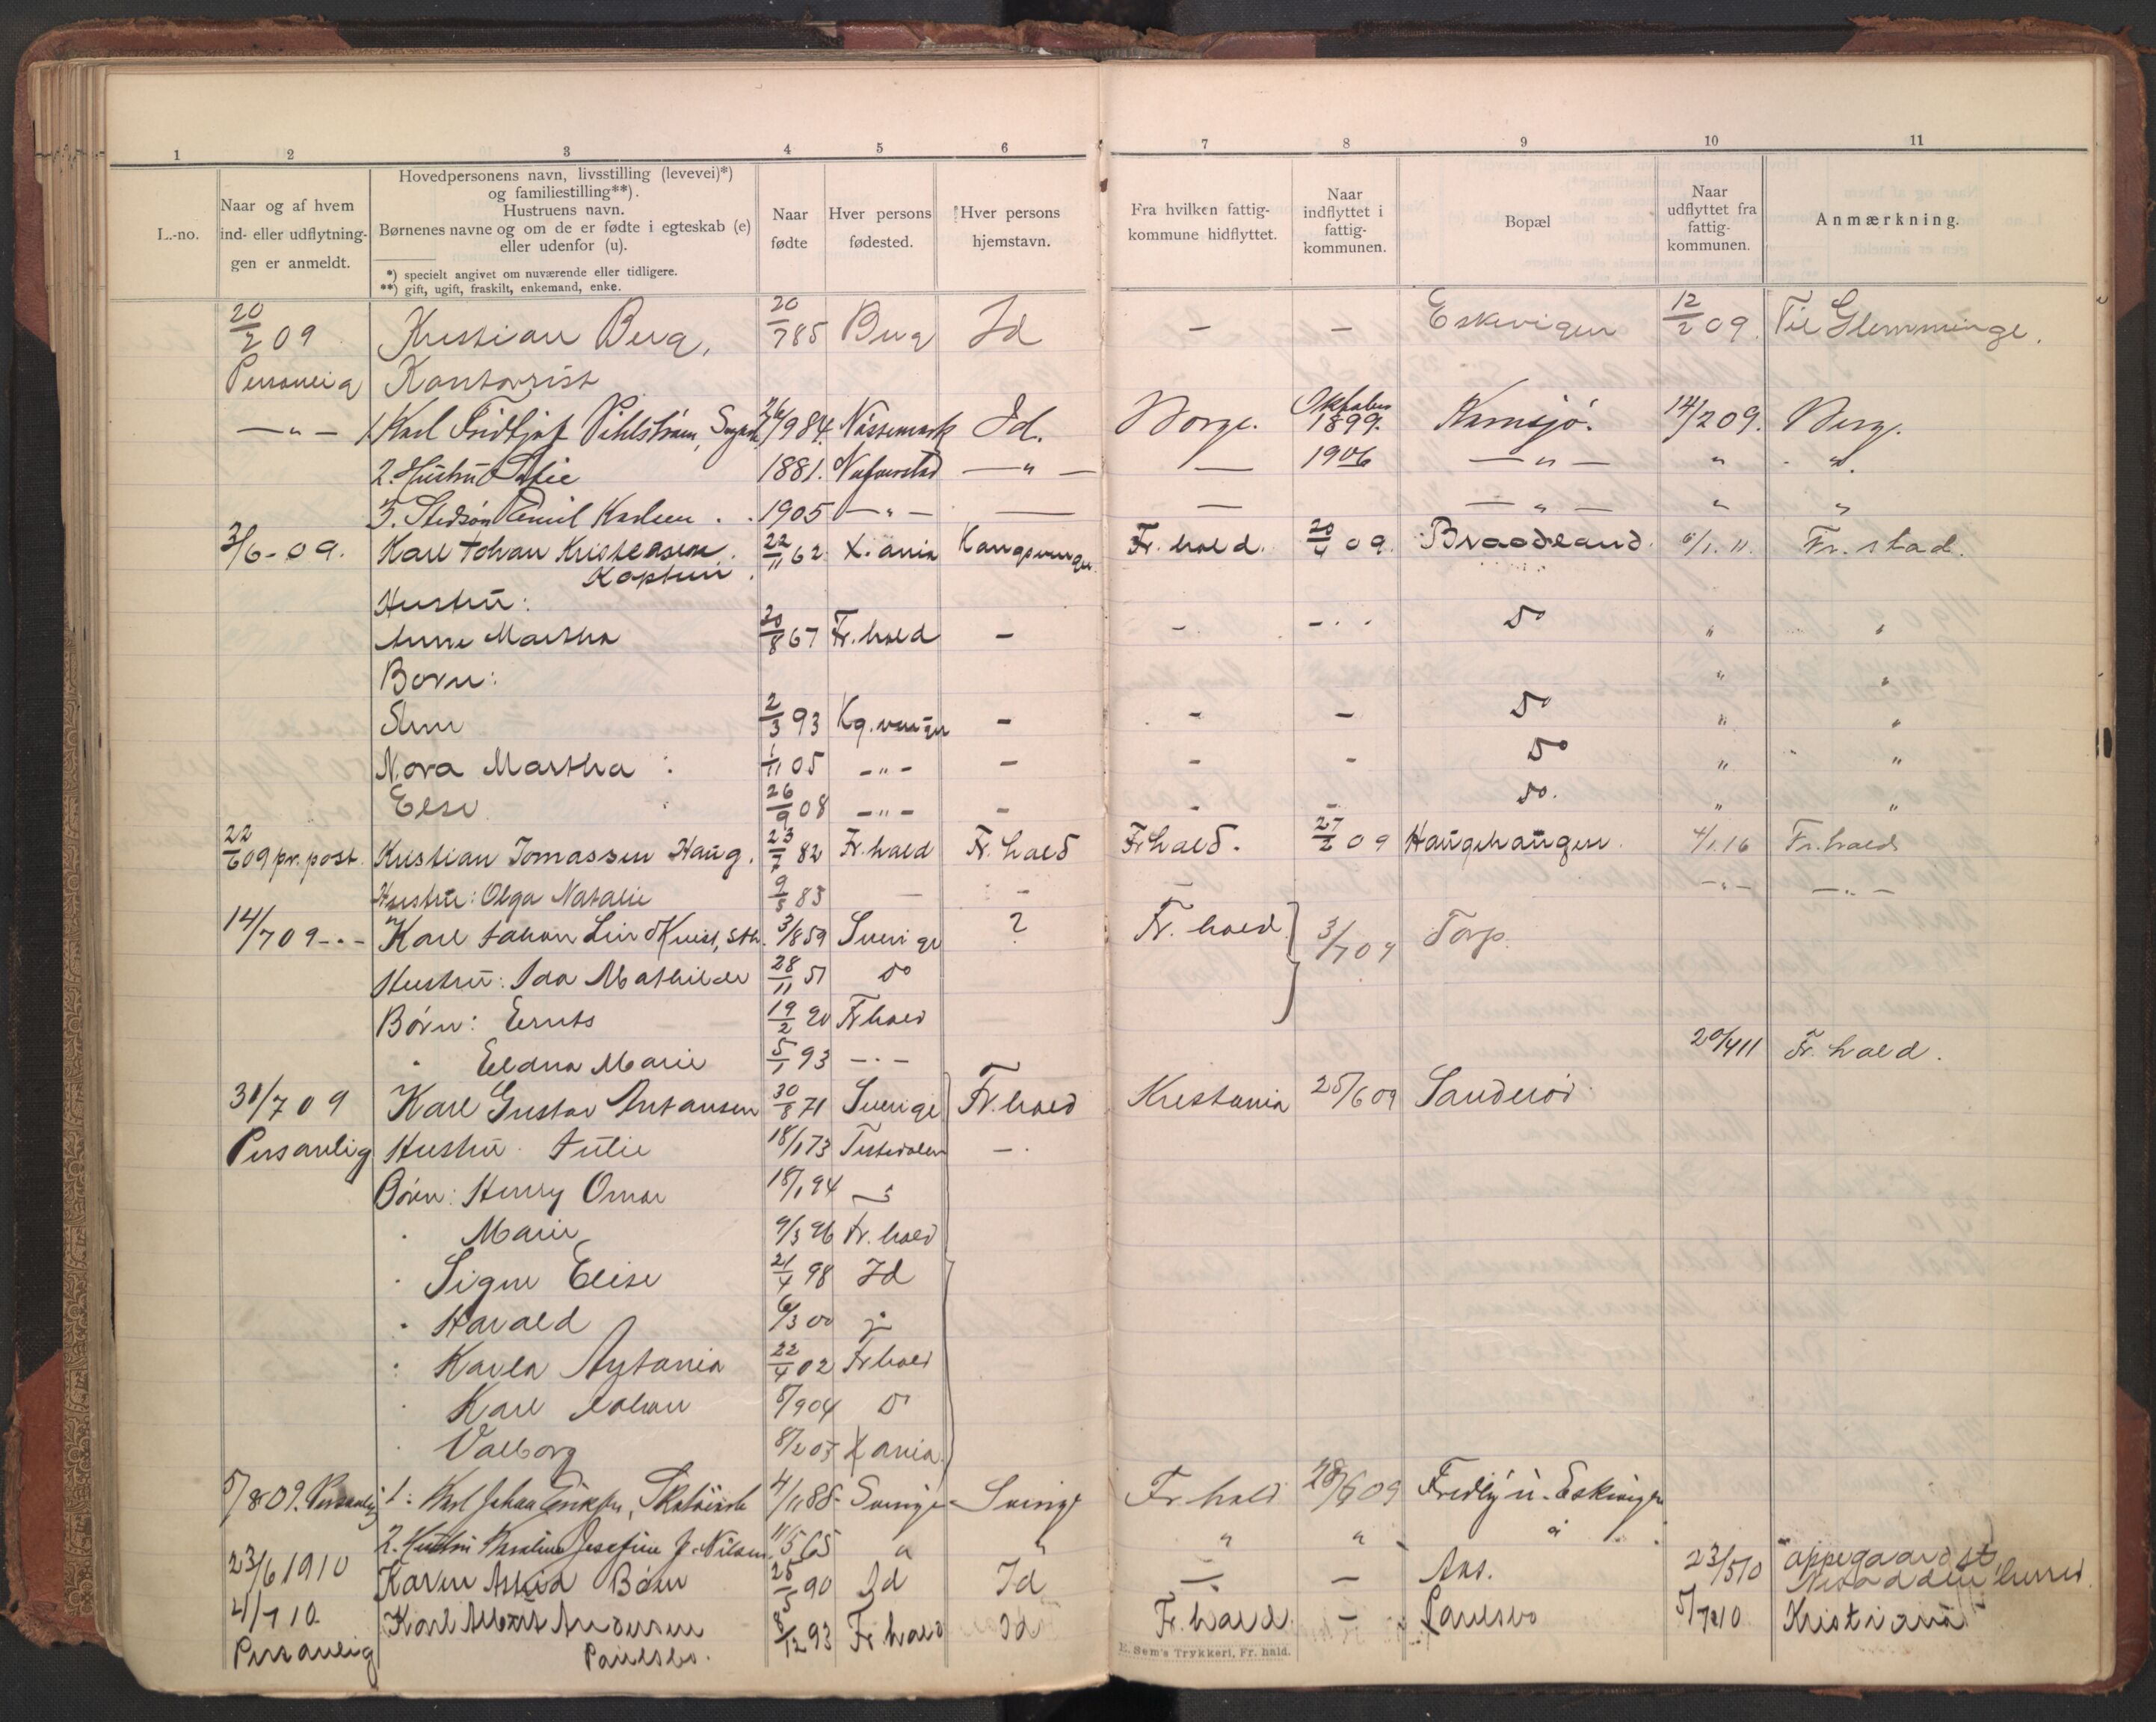 1 2 3 4 5 6 7 8 9 10 11
L.-no.
Naar og af hvem
ind- eller udflytnin-
gen er anmeldt.
Hovedpersonens navn, livsstilling (levevei)*)
og familiestilling**).
Hustruens navn.
Børnenes navne og om de er fødte i egteskab (e)
eller udenfor (u).
*) specielt angivet om nuværende eller tidligere.
**) gift, ugift, fraskilt, enkemand, enke.
Naar
fødte
Hver persons
fødested.
Hver persons
hjemstavn.
Fra hvilken fattig-
kommune hidflyttet.
Naar
indflyttet i
fattig-
kommunen.
Bopæl
Naar
udflyttet fra
fattig-
kommunen.
Anmærkning.
20/2 09 Kristian Berg, 20/7 85 Berg Id — — Eskevigen 12/2 09. Til Glemminge.
Personlig Kontorist
—"— 1 Karl Fridtjof Pihlstrøm, 26/9 84. Id. Borge. Oktober 1899. Kornsjø. 14/2 09. Berg.
2. Hustru 1881. —"— — 1906 —"— " "
3. Stedsøn Emil Karlsen . . 1905 —"— — — —"— " "
3/6-09. Karl Johan Kristensen. 22/11 62 X.ania Kongsvinger Fr.hald. 20/4 09 Braadland. 6/1.11. Fr.stad.
Kaptein.
Hustru:
Anne Martha 20/8 67 Fr.hald — — — do " "
Børn: " "
2/3 93 Kg.vinger — — — do " "
Nora Martha 1/11 05 —"— — — — do " "
Else 26/9 08 —"— — — — do. " "
22/6 09 pr.post. Kristian Tomassen Haug. 23/7 82 Fr.hald Fr.hald Frhald. 27/2 09 Haugehaugen. 4/1.16 Fr.hald
Hustru: Olga Natalie 9/5 83 — — —"— —"—
14/7 09 —"— Karl Johan Lindkvist, 3/8 59 Sverige ? Fr.hald. 3/7 09 Torp.
Hustru: Ida Mathilde 28/11 51 do
Børn: Ernts 19/2 90 Frhald
" Eldna Marie 5/1 93 —"— 20/4 11 Fr.hald.
31/7 09 Karl Gustav Antonsen 30/8 71 Sverige Fr.hald Kristania 25/6 09 Sanderød
Personlig Hustru Julie 18/1 73 Tistedalen —
Børn: Henry Omar 18/1 94
" Marie 9/3 96 Fr.hald
" Signe Elise 21/4 98 Id
" Harald 6/3 00
" Karla Antonia 22/4 02 Frhald
" Karl Johan 8/9 04 do
" Valborg X ania
5/8 09. Personlig 1. Karl Johan 4/11 88. Sverige Sverige Fr.hald 28/6 09 Fredly u. Eskevigen
2. Hustru Karoline Josefine f. Nilsen. 11/5 65 " " " " "
23/6 1910 Karen Astrid Bøen 90 Id Id — — Aas. 23/5 10 oppegaard st.
Nesodden herred.
4/7 10. Karl Albert Andersen 8/12 93 Fr hald Id Fr.hald. — Paulsbo 5/7 10 Kristiania
Personlig Paulsbo.
E. Sem's Trykkeri, Fr. hald.